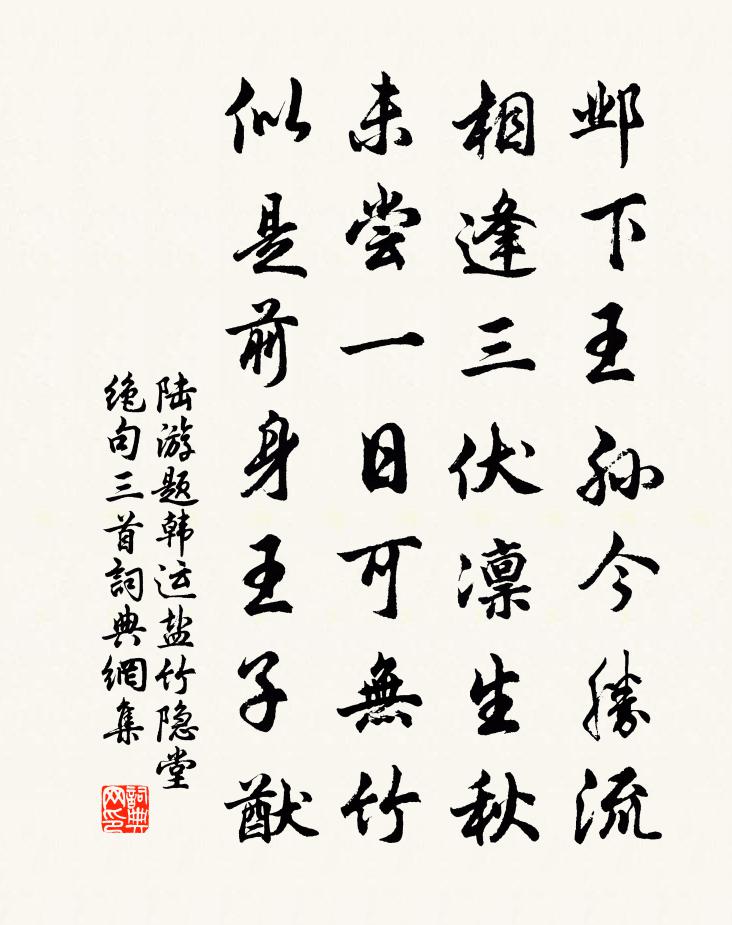 邺下王孙今勝流
相逢三伏凛生秋
未尝一日可無竹
似是前身王子猷
陆游题韩运盐竹隐堂
绝句三首詞典網集
詞典网印